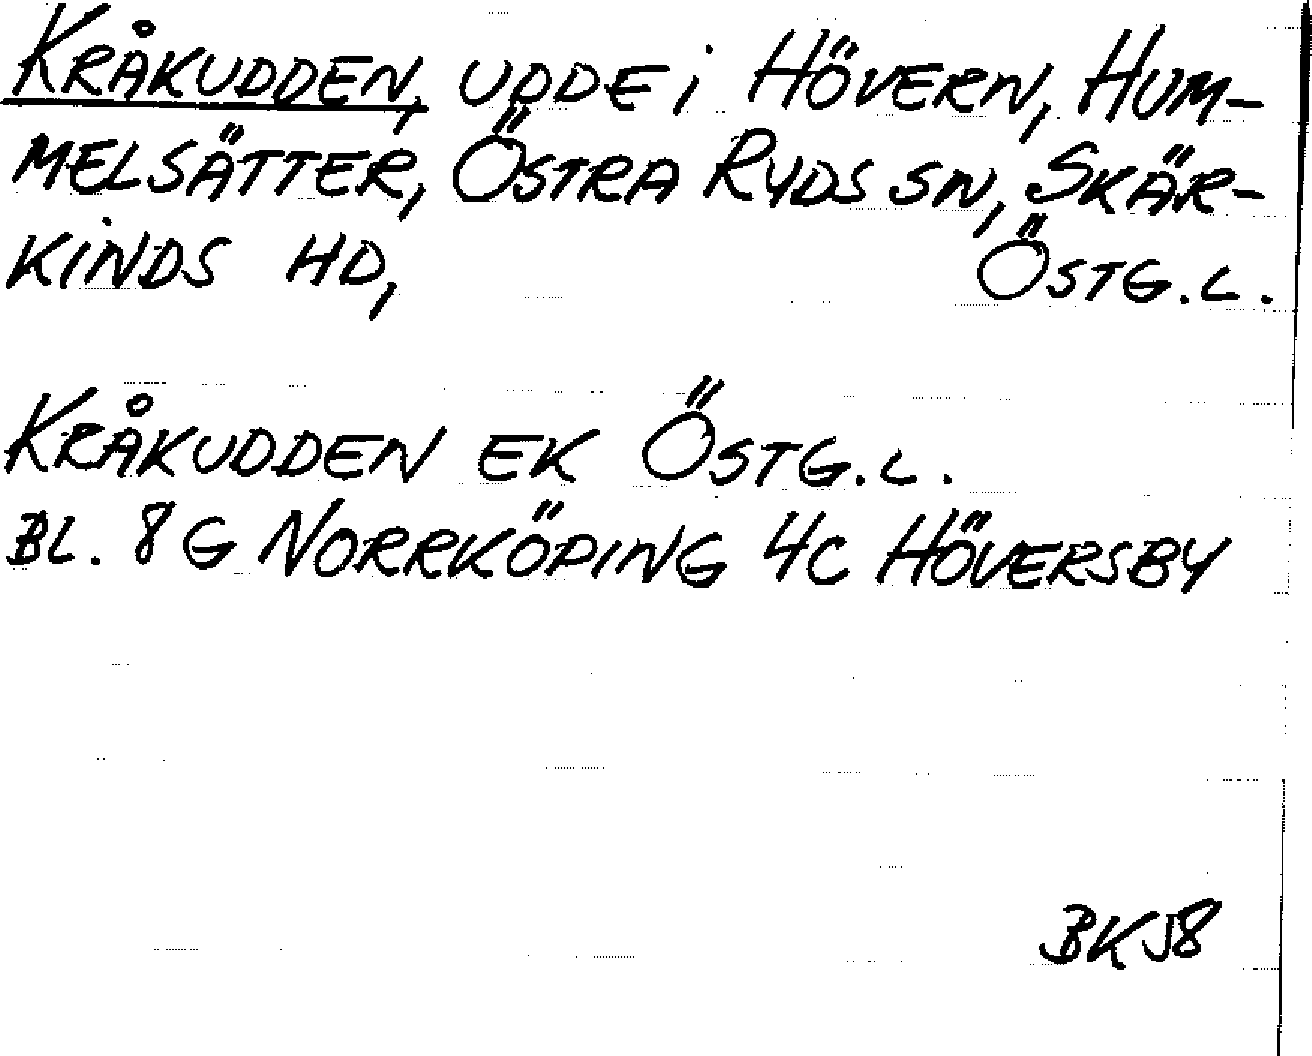 KRÅKUDDEN, UDDE i HÖVERN, HUM-
MELSÄTTER, ÖSTRA RYDS SN, SKÄR-
KINDS HD, ÖSTG.L.
KRÅKUDDEN EK ÖSTG.L.
BL. 8G NORRKÖPING 4C HÖVERSBY
BKJ8